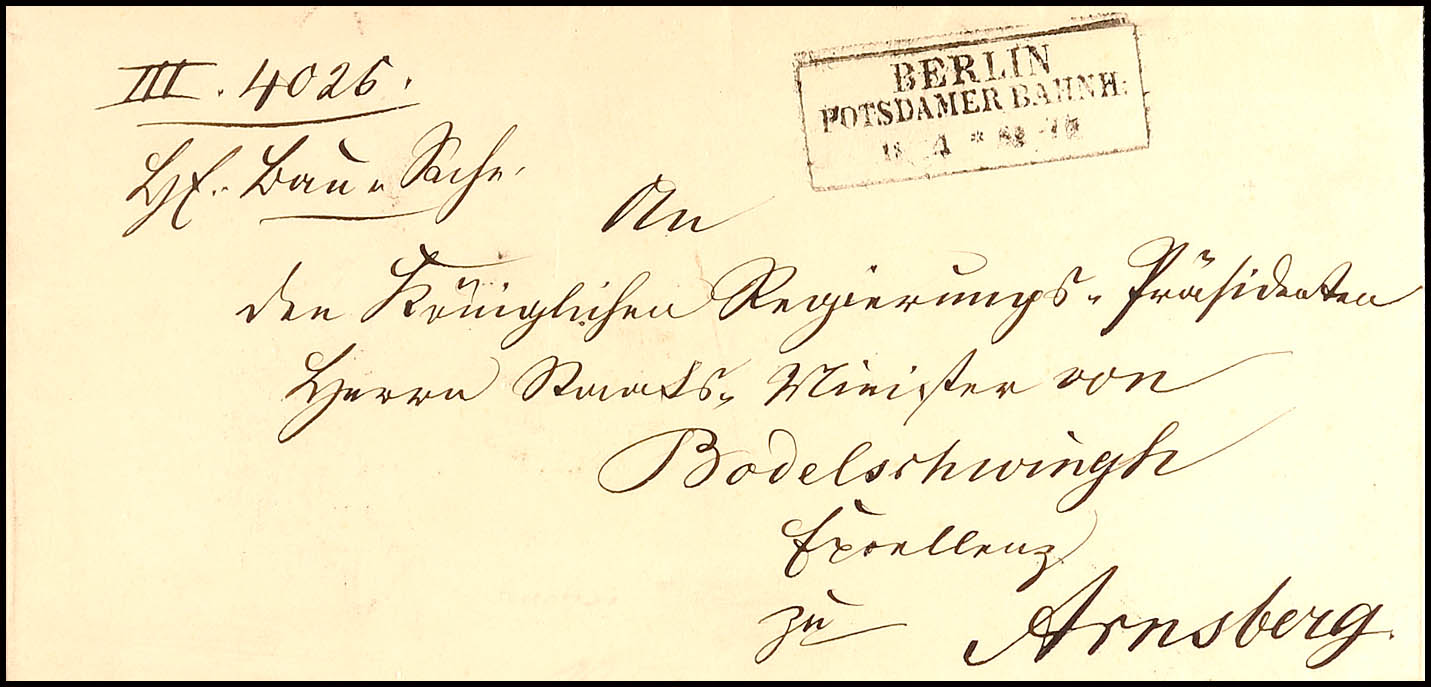 III. 4026.
Bau-Sache.
BERLIN
POTSDAMER BAHNH:
An
den Königlichen Regierungs-Präsidenten
Herrn Staats-Minister von
Bodelschwingh
Excellenz
zu Arnsberg.